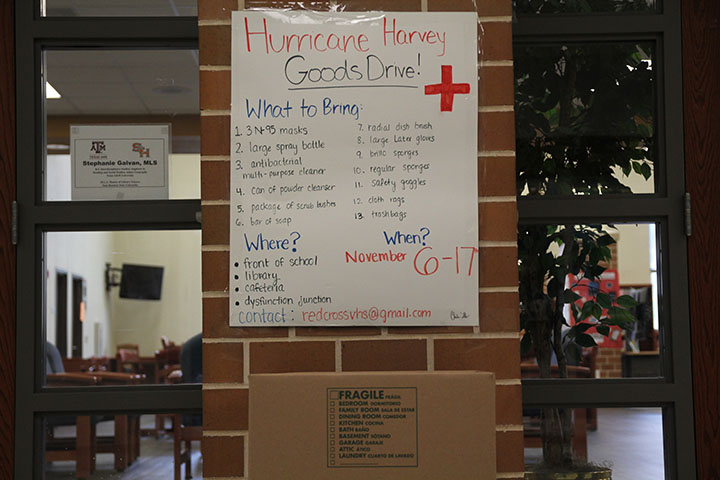 Hurricane Harvey
Goods Drive!
What to Bring:
1. 3 N-95 masks
2. large spray bottle
3. antibacterial
multi-purpose cleaner
4. can of powder cleanser
5. package of scrub bushes
6. bar of soap
7. radial dish brush
8. large Later gloves
9. brillo sponges
10. regular sponges
11. safety goggles
12. cloth rags
13. trashbags
Where?
• front of school
• library
• cafeteria
• dysfunction junction
When?
November 6-17
contact: redcrossvhs@gmail.com
ATM
SH
Stephanie Galvan, MLS
FRAGILE FRÁGIL
BEDROOM DORMITORIO
FAMILY ROOM SALA DE ESTAR
DINING ROOM COMEDOR
KITCHEN COCINA
BATH BAÑO
BASEMENT SÓTANO
GARAGE GARAJE
ATTIC ÁTICO
LAUNDRY CUARTO DE LAVADO